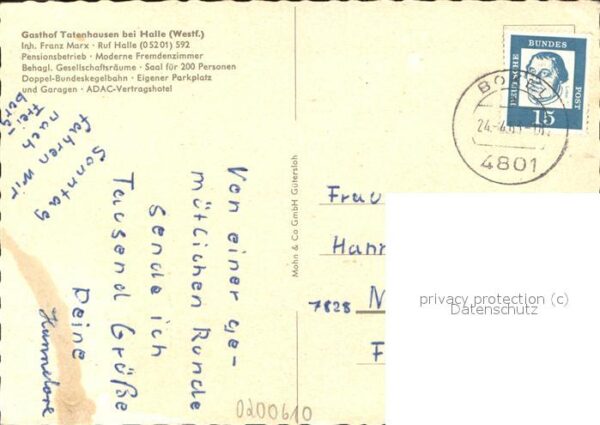 Gasthof Tatenhausen bei Halle (Westf.)
Inh. Franz Marx · Ruf Halle (05201) 592
Pensionsbetrieb · Moderne Fremdenzimmer
Behagl. Gesellschaftsräume · Saal für 200 Personen
Doppel-Bundeskegelbahn · Eigener Parkplatz
und Garagen · ADAC-Vertragshotel
Von einer ge-
mütlichen Runde
sende ich
Tausend Grüße
Deine
Hannelore
Sonntag
fahren wir
nach
Frei-
berg
Mohn & Co GmbH Gütersloh
DEUTSCHE
BUNDES
POST
15
4801
Frau
Hann
7828 N
F
privacy protection (c)
Datenschutz
0200610